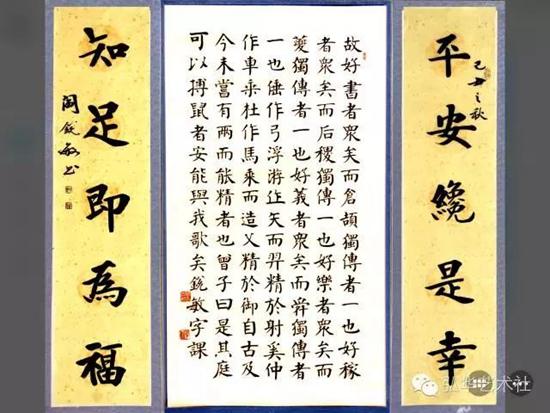 己丑之秋
平安纔是幸
故好書者眾矣而倉頡獨傳者一也好稼
者眾矣而后稷獨傳一也好樂者眾矣而
夔獨傳者一也好義者眾矣而舜獨傳者
一也倕作弓浮游作矢而羿精於射奚仲
作車乘杜作馬乘而造父精於御自古及
今未嘗有兩而能精者也曾子曰是其庭
可以搏鼠者安能與我歌矣銳敏字課
知足即為福
闞銳敏书
艺术社